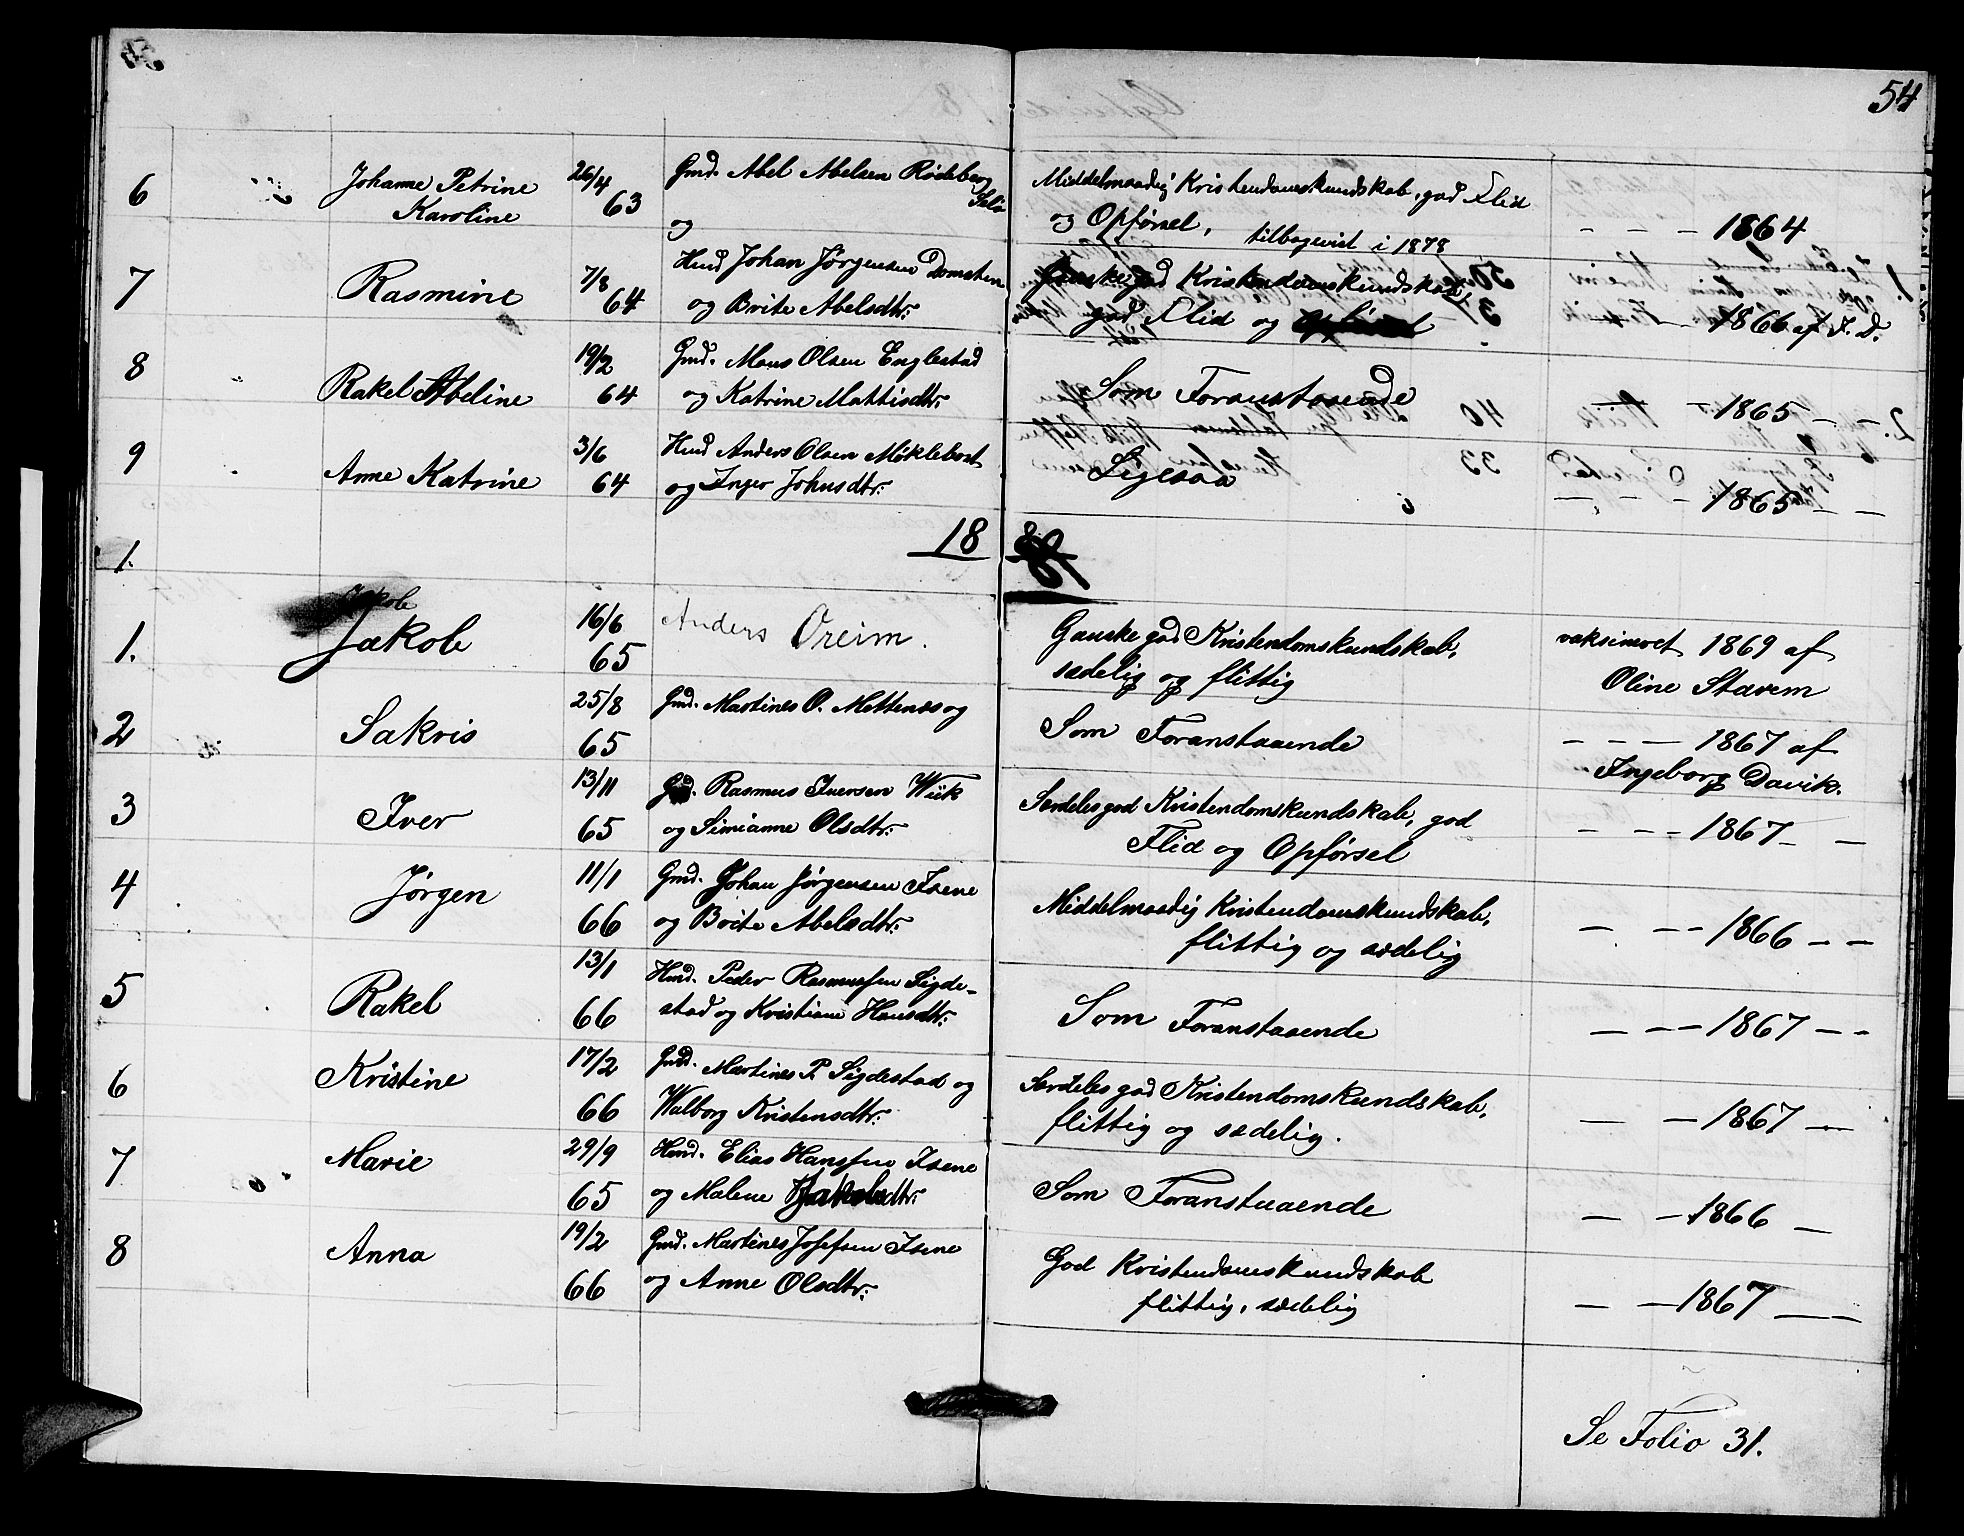 54
6 Johanne Petrine Karoline 26/4 63 Gmd. Abel Abelsen Rødeberg
og Middelmaadig Kristendomskundskab, god Flid
og Opførsel, tilbagevist i 1878 — — — 1864
7 Rasmine 7/8 64 Hmd Johan Jørgensen Domsten
og Brite Abelsdtr: Ganske god Kristendomskundskab,
god Flid og — — — 1866 af I. D.
8 Rakel Abeline 19/2 64 Gmd. Mons Olsen Englestad
og Katrine Mattisdtr: Som Foranstaaende — 1865 — —
9 Anne Katrine 3/6 64 Hmd Anders Olsen Møklebost
og Inger Johnsdtr: Ligesaa — — — 1865 — —
18 80
1.
Jakob
1. Jakob 16/6 65 Anders Oreim. Ganske god Kristendomskundskab,
sædelig og flittig vaksineret 1869 af
Oline Stavem
2 Sakris 25/8 65 Gmd. Martines O. Mettenæs og
Som Foranstaaende — — — 1867 af
Ingeborg Davik.
3 Iver 13/11 65 Gmd. Rasmus Iversen Wiik
og Simianne Olsdtr: Særdeles god Kristendomskundskab, god
Flid og Opførsel — — — 1867 — —
4 Jørgen 11/1 66 Gmd. Johan Jørgensen Isene
og Brite Abelsdtr: Middelmaadig Kristendomskundskab,
flittig og sædelig — — — 1866 — —
5 Rakel 13/1 66 Hmd. Peder Rasmussen Sigde-
stad og Kristiane Hansdtr: Som Foranstaaende — — — 1867 — —
6 Kristine 17/2 66 Gmd. Martines P. Sigdestad og
Walborg Kristensdtr: Særdeles god Kristendomskundskab,
flittig og sædelig. — — 1867 —
7 Marie 29/9 65 Hmd. Elias Hanssen Isene
og Malene Jakobsdtr: Som Foranstaaende — — 1866 —
8 Anna 19/2 66 Gmd. Martines Josefsen Isene
og Anne Olsdtr: God Kristendomskundskab
flittig, sædelig — — 1867 — —
Se Folio 31.